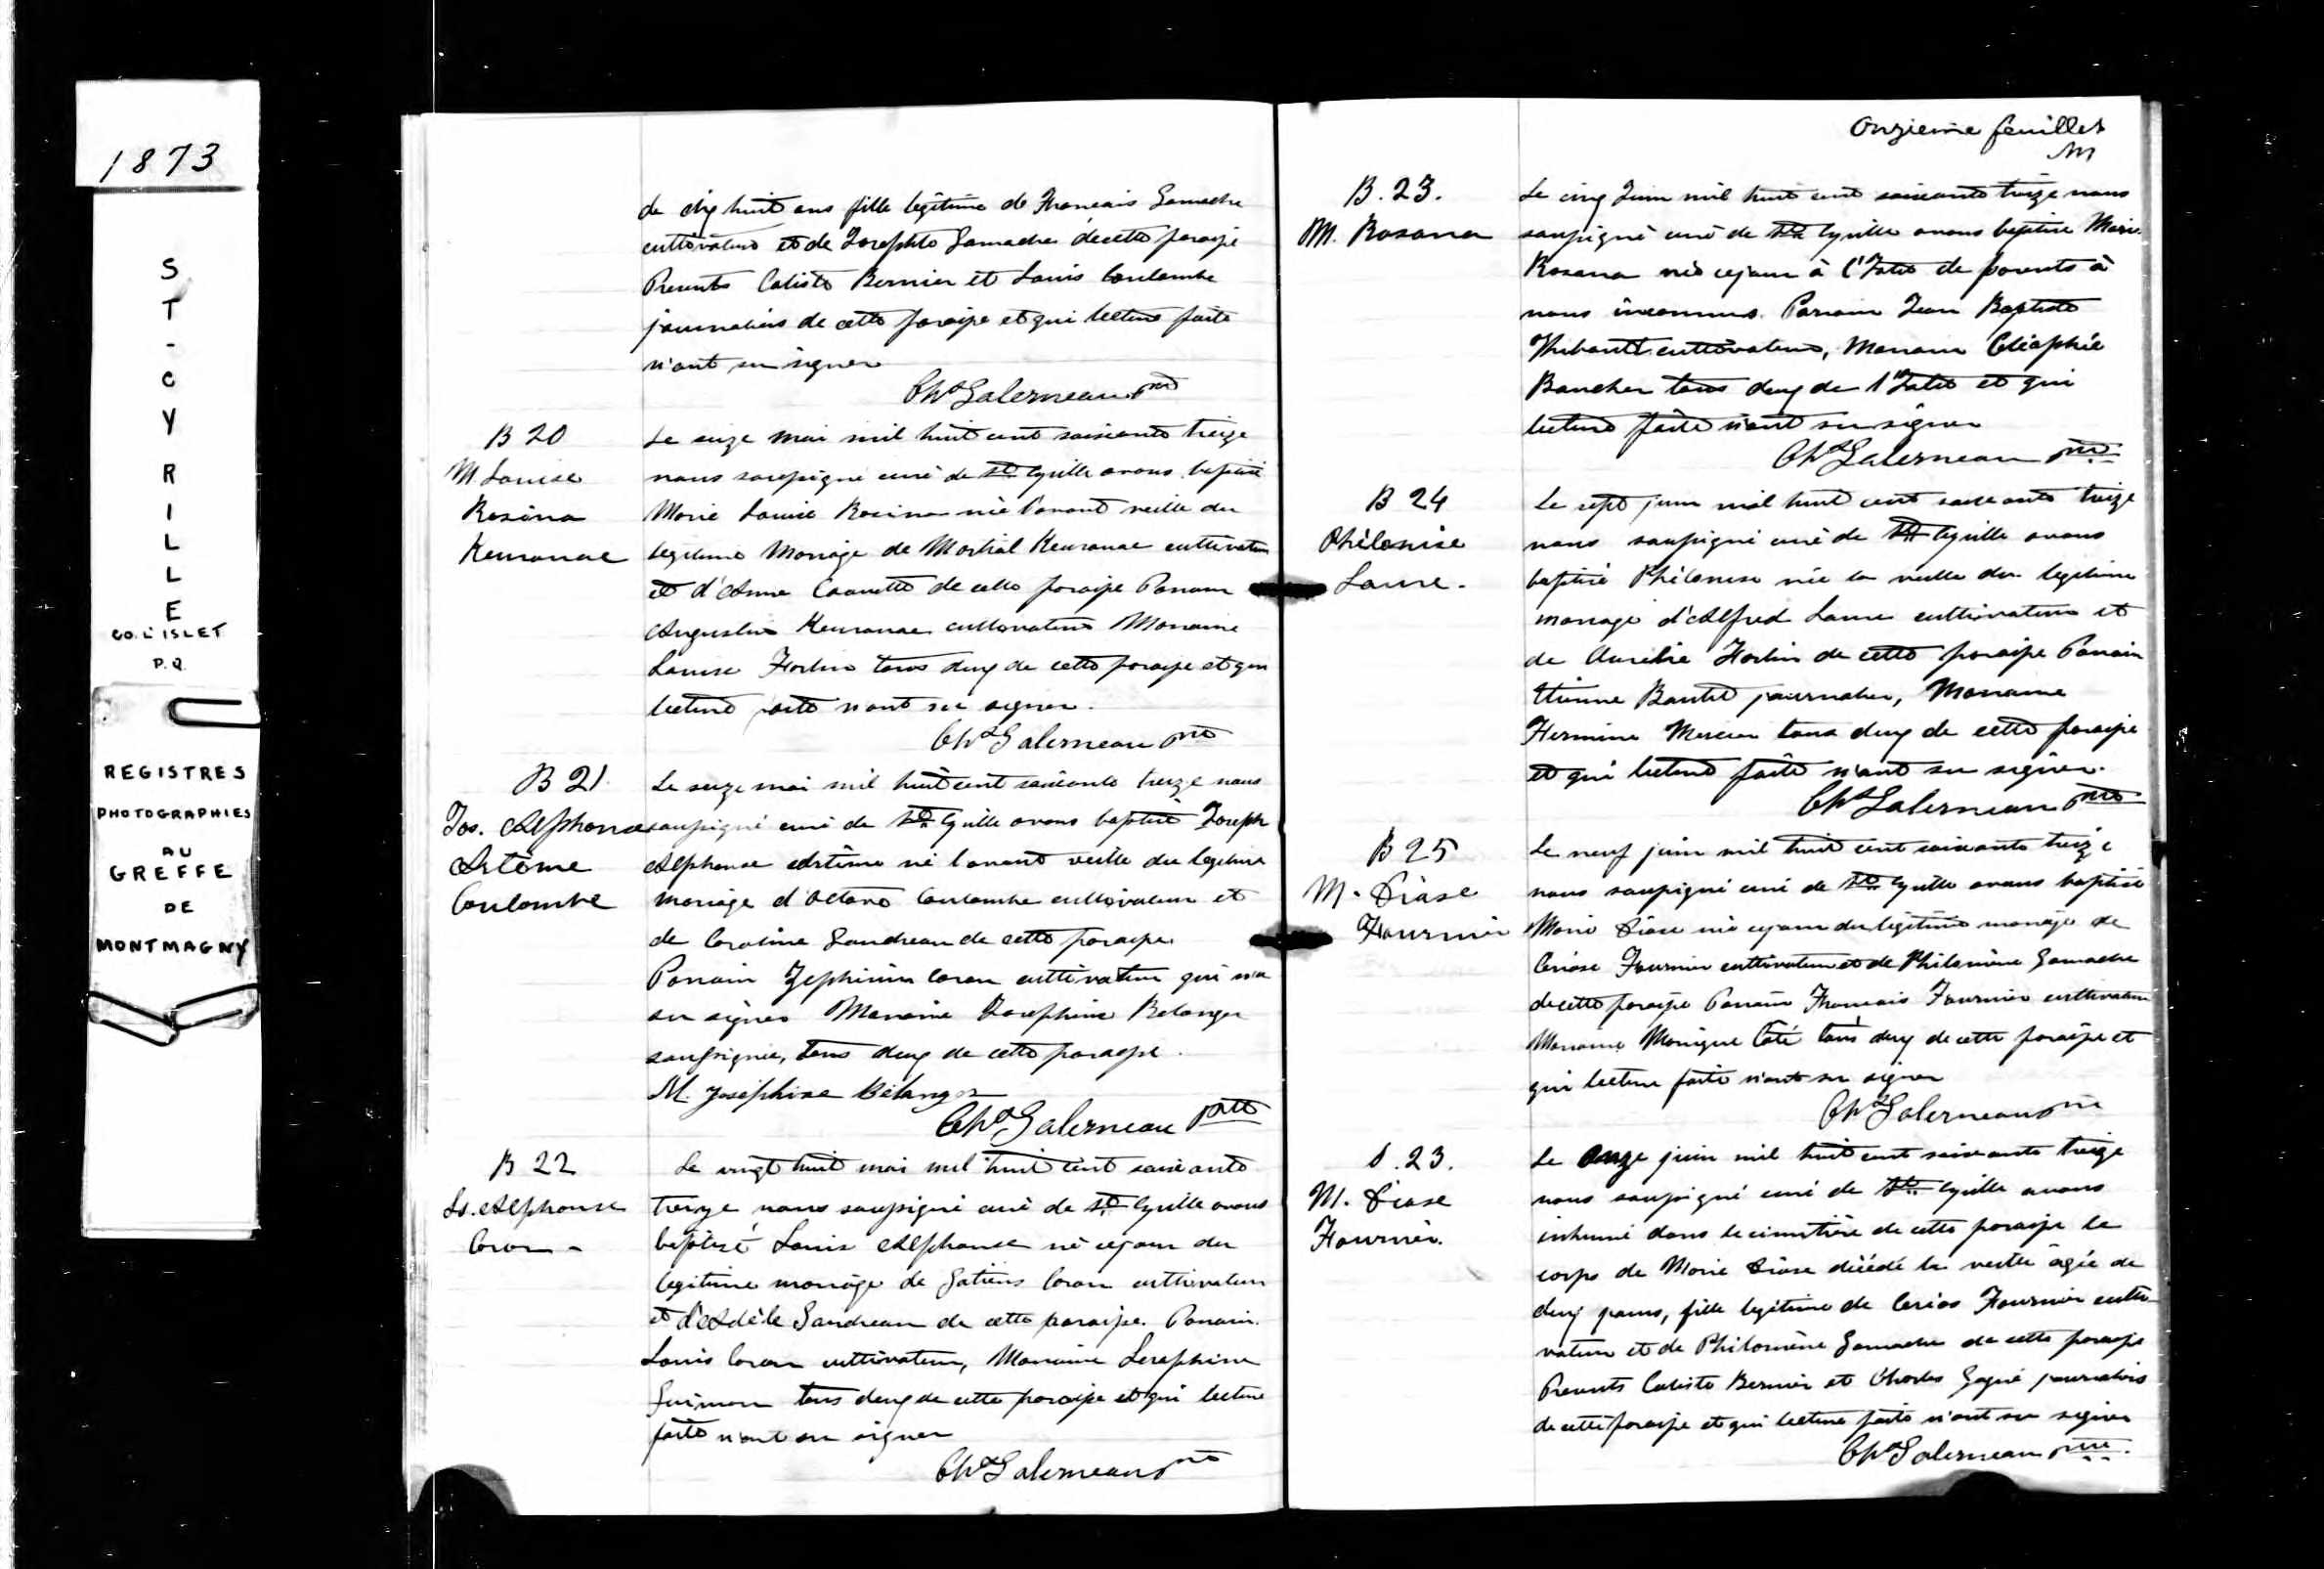 1873
ST-CYRILLE
CO. L'ISLET
P.Q.
REGISTRES
PHOTOGRAPHIES
AU
GREFFE
DE
MONTMAGNY
de dix huit ans fille légitime de Francais Gamache
cultivateur et de Josephte Gamache de cette paroisse
Presents Calisto Bernier et Louis Coulombe
journaliers de cette paroisse et qui lecture faite
n'ont su signer
Chs Galerneau ptre
B 20
M. Louise
Rosina
Keurouac
Le seize mai mil huit cent soixante treize
nous soussigné curé de St. Cyrille avons baptisé
Marie Louise Rosina née l'avant veille du
legitime Mariage de Martial Keurouac cultivateur
et d'Anne Caouette de cette paroisse Parrain
Augustin Keurouac cultivateur Marraine
Louise Fortin tous deux de cette paroisse et qui
lecture faite n'ont su signer.
Chs Galerneau ptre
B 21.
Jos. Alphonse
Artème
Coulombe
Le seize mai mil huit cent soixante treize nous
soussigné curé de St. Cyrille avons baptisé Joseph
Alphonse Artème né l'avant veille du legitime
mariage d'Octave Coulombe cultivateur et
de Caroline Gaudreau de cette paroisse.
Parrain Zephirin Caron cultivateur qui n'a
su signer Marraine Josephine Belanger
soussignée, tous deux de cette paroisse.
M. Joséphine Bélanger
Chs Galerneau ptre
B 22
Ls. Alphonse
Caron -
Le vingt huit mai mil huit cent soixante
treize nous soussigné curé de St. Cyrille avons
baptisé Louis Alphonse né ce jour du
legitime mariage de Gatiens Caron cultivateur
et d'Adèle Gaudreau de cette paroisse. Parrain
Louis Caron cultivateur, Marraine Serephine
Guimon tous deux de cette paroisse et qui lecture
faite n'ont su signer
Chs Galerneau ptre
Onzieme feuillet
B. 23.
M. Rosana
Le cinq Juin mil huit cent soixante treize nous
soussigné curé de St. Cyrille avons baptisé Marie
Rosana née ce jour à l'Islet de parents à
nous inconnus. Parrain Jean Baptiste
Thibault cultivateur, Marraine Cléophée
Boucher tous deux de l'Islet et qui
lecture faite n'ont su signer
Chs Galerneau ptre
B 24
Philonise
Laure.
Le sept juin mil huit cent soixante treize
nous soussigné curé de St. Cyrille avons
baptisé Philonise née la veille du legitime
mariage d'Alfred Laure cultivateur et
de Aurélie Fortin de cette paroisse Parrain
Etienne journalier, Marraine
Hermine Mercier tous deux de cette paroisse
et qui lecture faite n'ont su signer.
Chs Galerneau ptre
B 25
M.
Fournier
Le neuf juin mil huit cent soixante treize
nous soussigné curé de St. Cyrille avons baptisé
Marie née ce jour du légitime mariage de
Fournier cultivateur et de Philomène Gamache
de cette paroisse Parrain Francais Fournier cultivateur
Marraine Monique Côté tous deux de cette paroisse et
qui lecture faite n'ont su signer
Chs Galerneau ptre
S. 23.
M.
Fournier.
Le Onze juin mil huit cent soixante treize
nous soussigné curé de St. Cyrille avons
inhumé dans le cimetière de cette paroisse le
corps de Marie décédé la veille âgée de
deux jours, fille legitime de Fournier culti-
vateur et de Philomène Gamache de cette paroisse
Presents Calisto Bernier et Charles Gagné journaliers
de cette paroisse et qui lecture faite n'ont su signer
Chs Galerneau ptre.